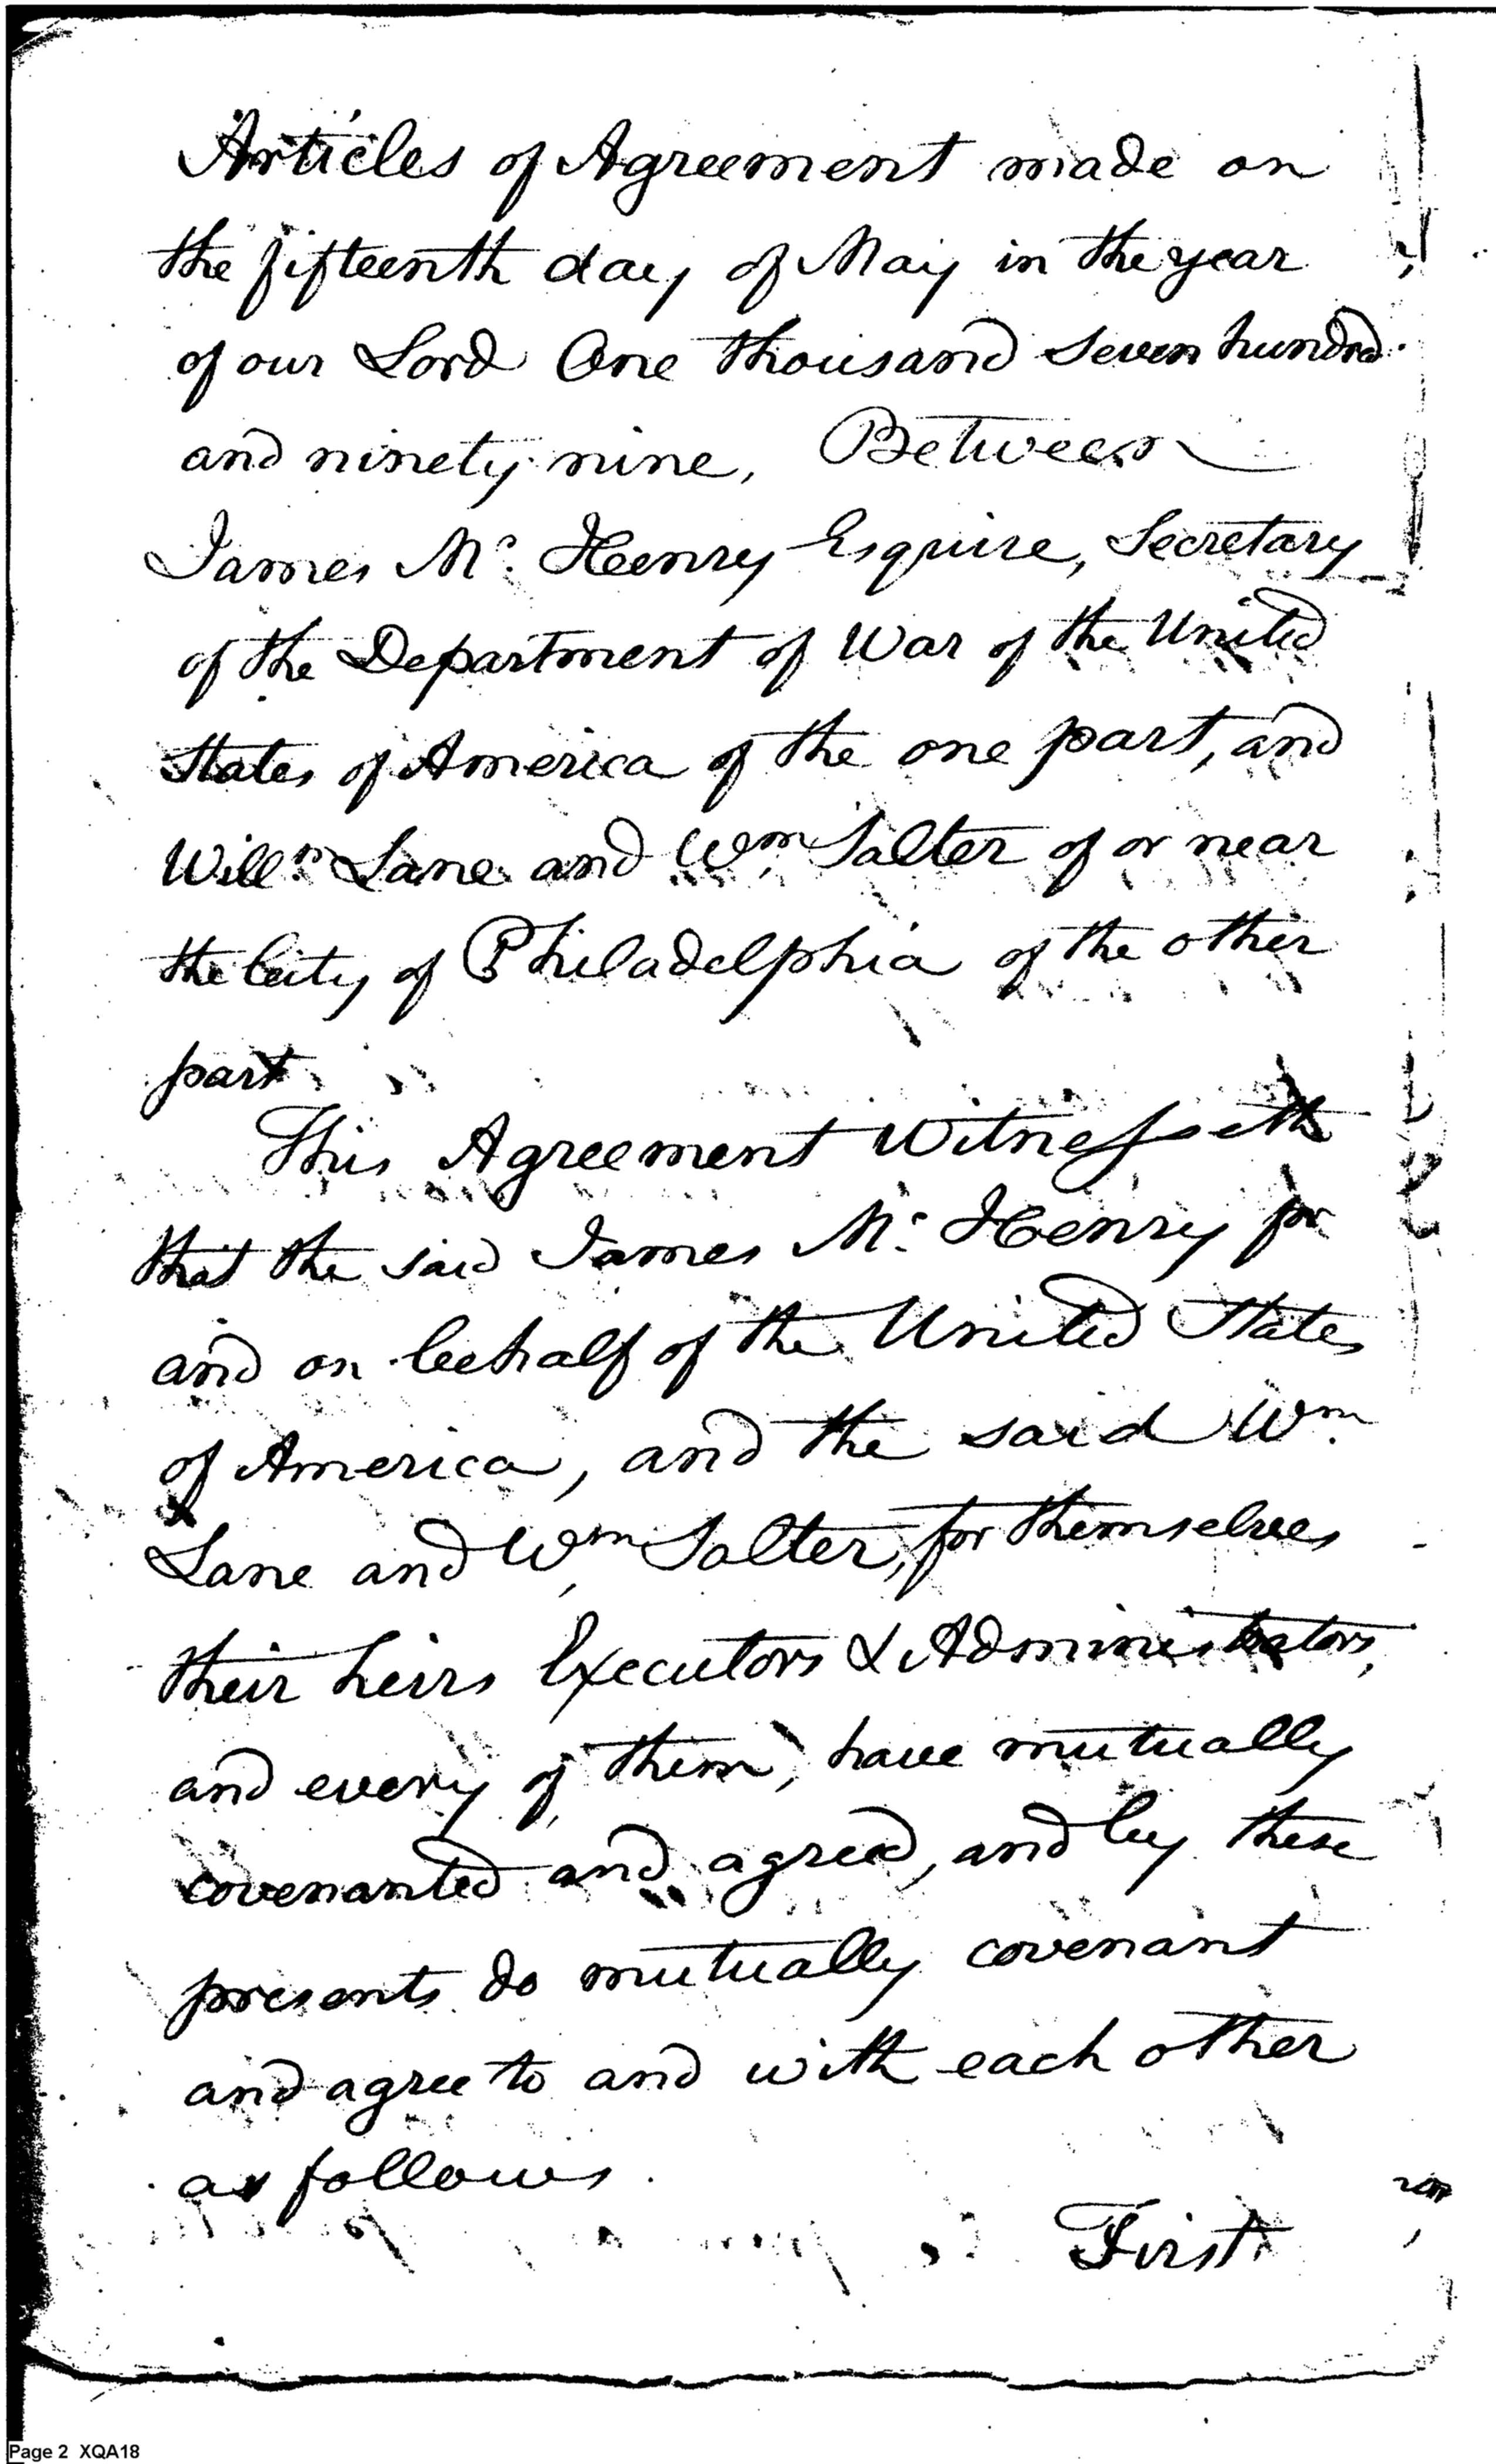 Articles of Agreement made on
the fifteenth day of May in the year
of our Lord One thousand seven hundred
and ninety nine, Between
James Mc. Henry Esquire, Secretary
of the Department of War of the United
States of America of the one part, and
Willm Lane and Wm Salter of or near
the City of Philadelphia of the other
part.
This Agreement Witnesseth
that the said James Mc. Henry for
and on behalf of the United States
of America, and the said Wm.
Lane and Wm Salter, for themselves
their heirs Executors & Administrators,
and every of them, have mutually
covenanted and agreed, and by these
presents do mutually covenant
and agree to and with each other
as follows.
First
Page 2 XQA18